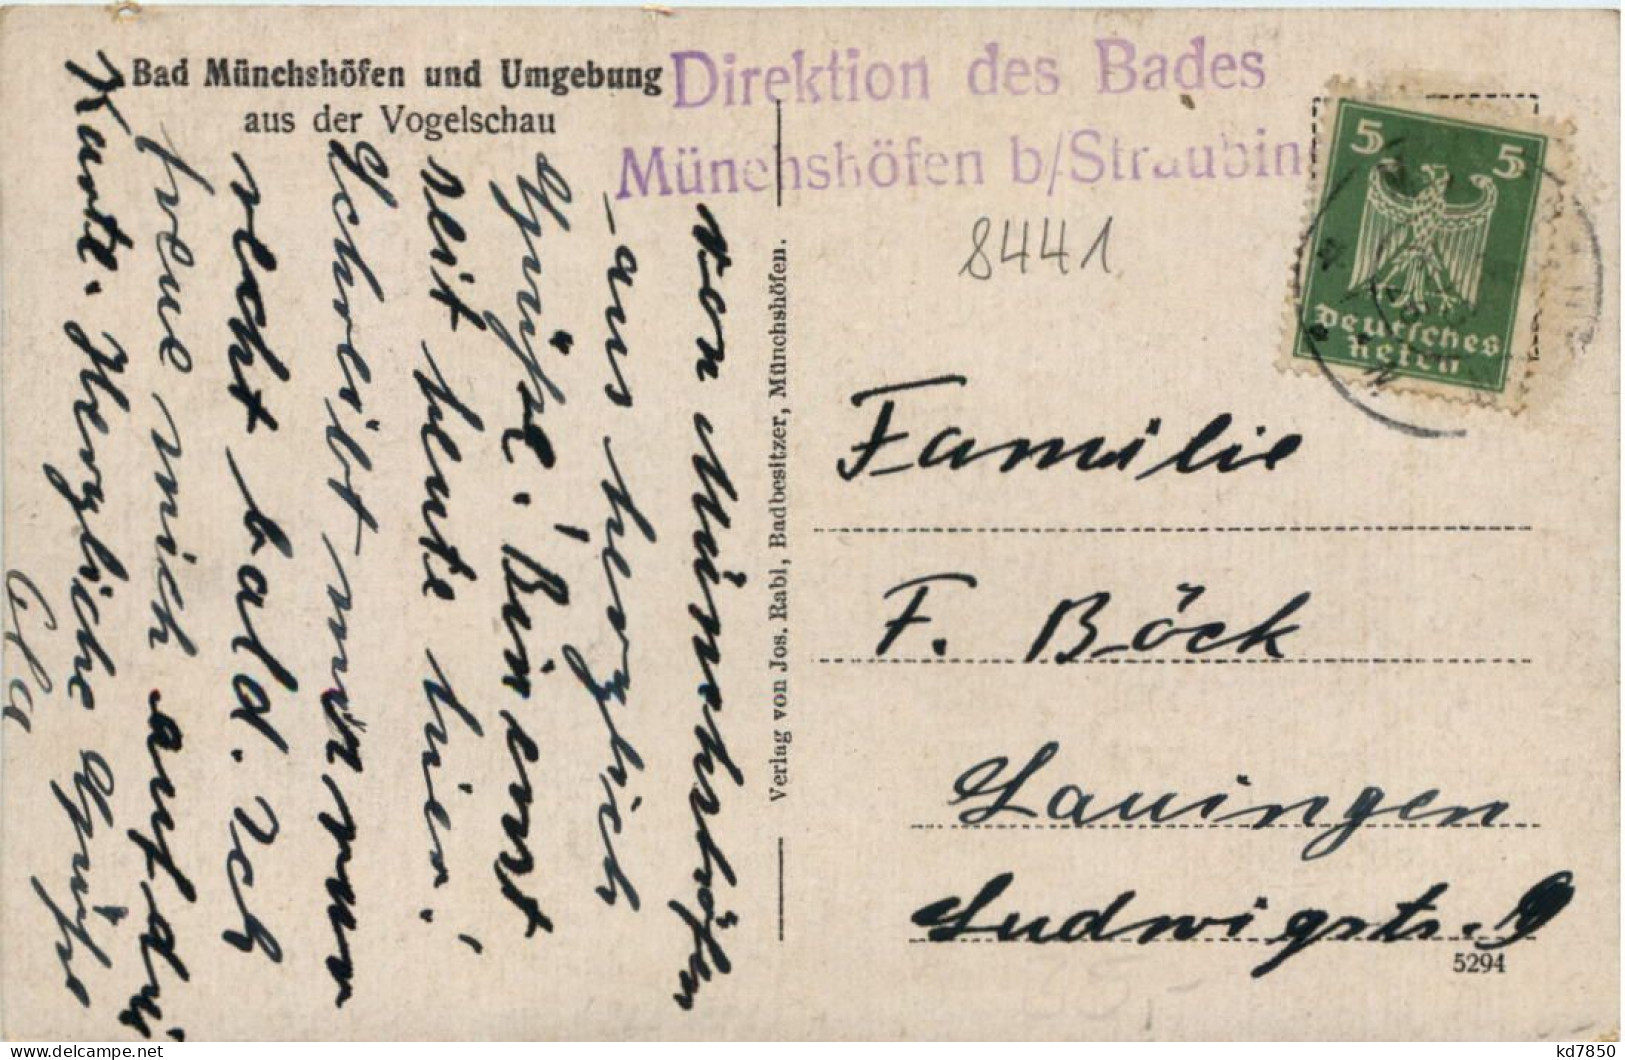 Bad Münchshöfen und Umgebung
aus der Vogelschau
Direktion des Bades
Münchshöfen b/Straubin
8441
5 5
Deutsches
Reich
von Münchshöfen
aus herzlich
Grüße. Bin erst
seit heute hier.
Schreibt mir nur
recht bald. Ich
freue mich auf die
Karte. Herzliche Grüße
Verlag von Jos. Rabl, Badbesitzer, Münchshöfen.
Familie
F. Böck
Lauingen
Ludwigstr. 9
5294
kd7850